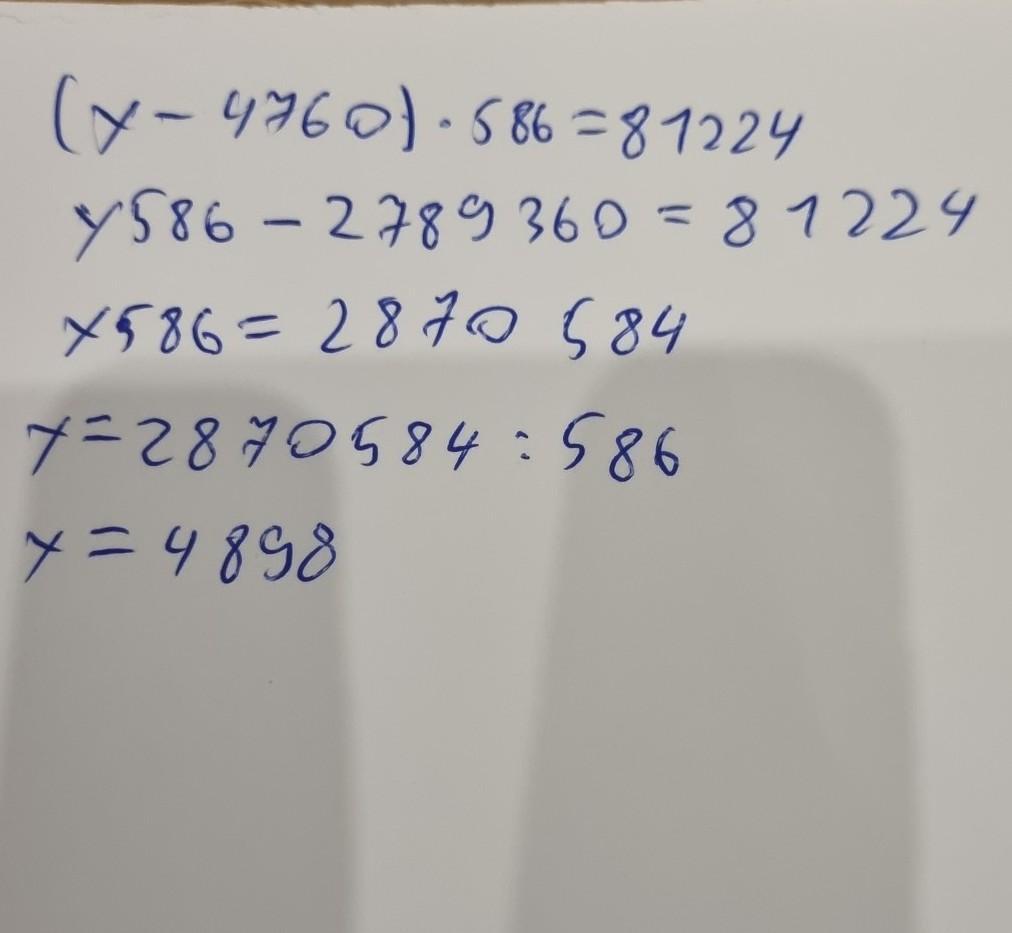 (x - 4760) · 586 = 81224
x586 - 2789360 = 81224
x586 = 2870 584
x = 2870584 : 586
x = 4898